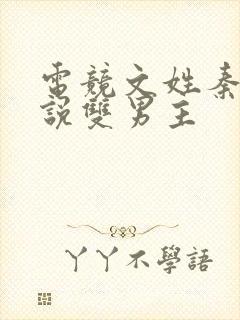 電競文姓秦
說雙男主
丫丫不學語